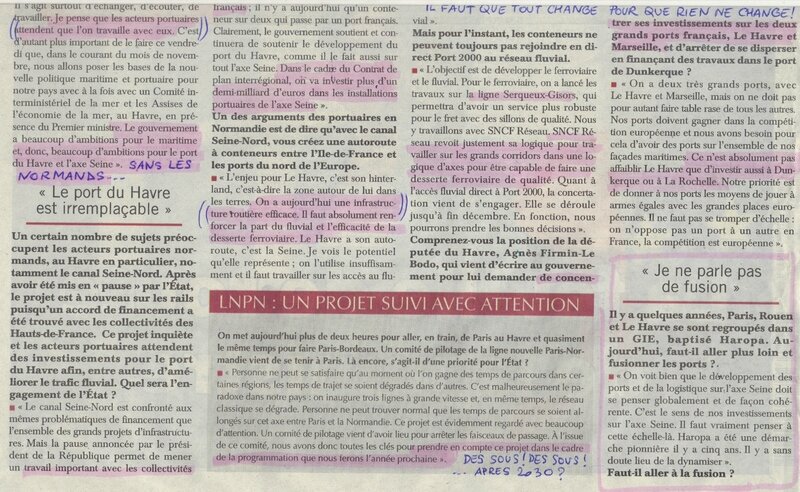 Il s'agit surtout d'échanger, d'écouter, de
travailler. Je pense que les acteurs portuaires
attendent que l'on travaille avec eux. C'est
d'autant plus important de le faire ce vendre-
di que, dans le courant du mois de novem-
bre, nous allons poser les bases de la nou-
velle politique maritime et portuaire pour
notre pays avec à la fois avec un Comité in-
terministériel de la mer et les Assises de
l'économie de la mer, au Havre, en pré-
sence du Premier ministre. Le gouvernement
a beaucoup d'ambitions pour le maritime
et, donc, beaucoup d'ambitions pour le port
du Havre et l'axe Seine ». SANS LES
NORMANDS...
« Le port du Havre
est irremplaçable »
Un certain nombre de sujets préoc-
cupent les acteurs portuaires nor-
mands, au Havre en particulier, no-
tamment le canal Seine-Nord. Après
avoir été mis en « pause » par l'État,
le projet est à nouveau sur les rails
puisqu'un accord de financement a
été trouvé avec les collectivités des
Hauts-de-France. Ce projet inquiète
et les acteurs portuaires attendent
des investissements pour le port du
Havre afin, entre autres, d'amé-
liorer le trafic fluvial. Quel sera l'en-
gagement de l'État ?
■ « Le canal Seine-Nord est confronté aux
mêmes problématiques de financement que
l'ensemble des grands projets d'infrastructu-
res. Mais la pause annoncée par le prési-
dent de la République permet de mener
un travail important avec les collectivités
français ; il n'y a aujourd'hui qu'un conte-
neur sur deux qui passe par un port français.
Clairement, le gouvernement soutient et con-
tinuera de soutenir le développement du
port du Havre, comme il le fait aussi sur
tout l'axe Seine. Dans le cadre du Contrat de
plan interrégional, on va investir plus d'un
demi-milliard d'euros dans les installations
portuaires de l'axe Seine ».
Un des arguments des portuaires en
Normandie est de dire qu'avec le canal
Seine-Nord, vous créez une autoroute
à conteneurs entre l'Ile-de-France et
les ports du nord de l'Europe.
■ « L'enjeu pour Le Havre, c'est son hinter-
land, c'est-à-dire la zone autour de lui dans
les terres. On a aujourd'hui une infrastruc-
ture routière efficace. Il faut absolument ren-
forcer la part du fluvial et l'efficacité de la
desserte ferroviaire. Le Havre a son auto-
route, c'est la Seine. Je vois le potentiel
qu'elle représente ; on l'utilise insuffisam-
ment et il faut travailler sur les accès au flu-
IL FAUT QUE TOUT CHANGE
vial ».
Mais pour l'instant, les conteneurs ne
peuvent toujours pas rejoindre en di-
rect Port 2000 au réseau fluvial.
■ « L'objectif est de développer le ferroviaire
et le fluvial. Pour le ferroviaire, on a lancé les
travaux sur la ligne Serqueux-Gisors, qui
permettra d'avoir un service plus robuste
pour le fret avec des sillons de qualité. Nous
y travaillons avec SNCF Réseau. SNCF Ré-
seau revoit justement sa logique pour tra-
vailler sur les grands corridors dans une lo-
gique d'axes pour être capable de faire une
desserte ferroviaire de qualité. Quant à
l'accès fluvial direct à Port 2000, la concerta-
tion vient de s'engager. Elle se déroule
jusqu'à fin décembre. En fonction, nous
pourrons prendre les bonnes décisions ».
Comprenez-vous la position de la dé-
putée du Havre, Agnès Firmin-Le
Bodo, qui vient d'écrire au gouverne-
ment pour lui demander de concen-
POUR QUE RIEN NE CHANGE !
trer ses investissements sur les deux
grands ports français, Le Havre et
Marseille, et d'arrêter de se disperser
en finançant des travaux dans le port
de Dunkerque ?
■ « On a deux très grands ports, avec
Le Havre et Marseille, mais on ne doit pas
pour autant faire table rase de tous les autres.
Nos ports doivent gagner dans la compéti-
tion européenne et nous avons besoin pour
cela d'avoir des ports sur l'ensemble de nos
façades maritimes. Ce n'est absolument pas
affaiblir Le Havre que d'investir aussi à Dun-
kerque ou à La Rochelle. Notre priorité est
de donner à nos ports les moyens de jouer à
armes égales avec les grandes places euro-
péennes. Il ne faut pas se tromper d'échelle :
on n'oppose pas un port à un autre en
France, la compétition est européenne ».
« Je ne parle pas
de fusion »
Il y a quelques années, Paris, Rouen
et Le Havre se sont regroupés dans
un GIE, baptisé Haropa. Au-
jourd'hui, faut-il aller plus loin et
fusionner les ports ?
■ « On voit bien que le développement des
ports et de la logistique sur l'axe Seine doit
se penser globalement et de façon cohé-
rente. C'est le sens de nos investissements
sur l'axe Seine. Il faut vraiment penser à
cette échelle-là. Haropa a été une démar-
che pionnière il y a cinq ans. Il y a sans
doute lieu de la dynamiser ».
Faut-il aller à la fusion ?
LNPN : UN PROJET SUIVI AVEC ATTENTION
On met aujourd'hui plus de deux heures pour aller, en train, de Paris au Havre et quasiment
le même temps pour faire Paris-Bordeaux. Un comité de pilotage de la ligne nouvelle Paris-Nor-
mandie vient de se tenir à Paris. Là encore, s'agit-il d'une priorité pour l'État ?
■ « Personne ne peut se satisfaire qu'au moment où l'on gagne des temps de parcours dans cer-
taines régions, les temps de trajet se soient dégradés dans d'autres. C'est malheureusement le pa-
radoxe dans notre pays : on inaugure trois lignes à grande vitesse et, en même temps, le réseau
classique se dégrade. Personne ne peut trouver normal que les temps de parcours se soient allon-
gés sur cet axe entre Paris et la Normandie. Ce projet est évidemment regardé avec beaucoup
d'attention. Un comité de pilotage vient d'avoir lieu pour arrêter les faisceaux de passage. À l'issue
de ce comité, nous avons donc toutes les clés pour prendre en compte ce projet dans le cadre
de la programmation que nous ferons l'année prochaine ». DES SOUS ! DES SOUS !
... APRES 2030 ?